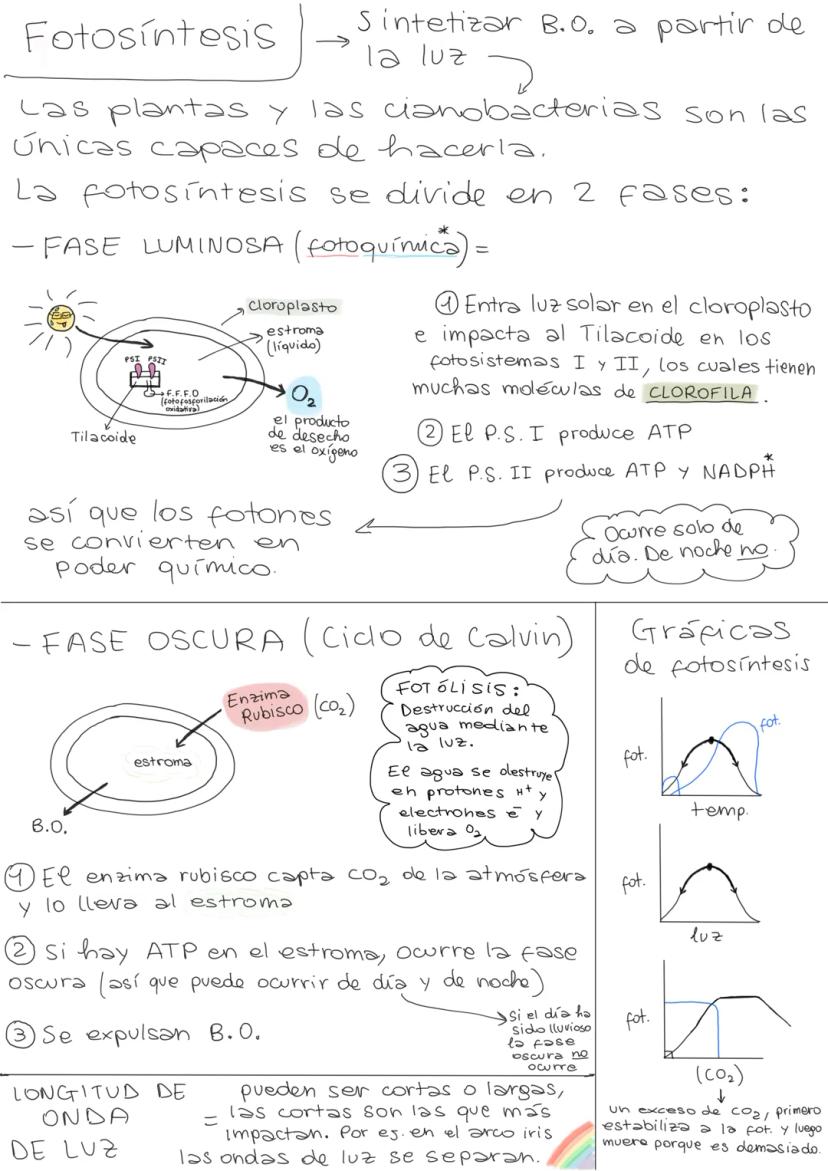 Fotosíntesis → Sintetizar B.O. a partir de
la luz
Las plantas y las cianobacterias son las
únicas capaces de hacerla.
La fotosíntesis se divide en 2 fases:
- FASE LUMINOSA (fotoquímica*) =
cloroplasto
estroma
(líquido)
PSI PSII
F.F.F.O
(fotofosforilación
oxidativa)
Tilacoide
O₂
el producto
de desecho
es el oxígeno
① Entra luz solar en el cloroplasto
e impacta al Tilacoide en los
fotosistemas I y II, los cuales tienen
muchas moléculas de CLOROFILA.
② El P.S. I produce ATP
③ El P.S. II produce ATP y NADPH*
así que los fotones
se convierten en
poder químico.
Ocurre solo de
día. De noche no.
- FASE OSCURA (Ciclo de Calvin)
Enzima
Rubisco (CO₂)
estroma
B.O.
FOTÓLISIS:
Destrucción del
agua mediante
la luz.
El agua se destruye
en protones H⁺ y
electrones e⁻ y
libera O₂
① El enzima rubisco capta CO₂ de la atmósfera
y lo lleva al estroma
② Si hay ATP en el estroma, ocurre la fase
oscura (así que puede ocurrir de día y de noche)
Si el día ha
sido lluvioso
la fase
oscura no
ocurre
③ Se expulsan B.O.
Gráficas
de fotosíntesis
fot.
fot.
temp.
fot.
luz
fot.
(CO₂)
un exceso de CO₂, primero
estabiliza a la fot. y luego
muere porque es demasiado.
LONGITUD DE
ONDA
DE LUZ
= pueden ser cortas o largas,
las cortas son las que más
impactan. Por ej. en el arco iris
las ondas de luz se separan.